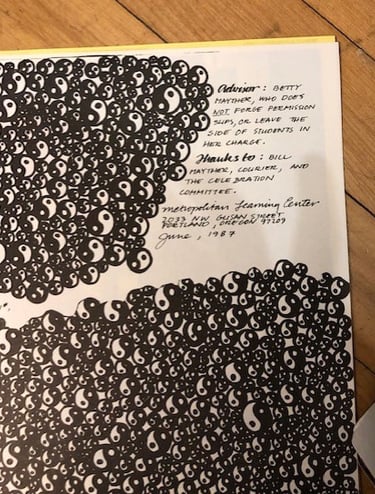 Advisor: BETTY
MAYTHER, WHO DOES
NOT FORGE PERMISSION
SLIPS, OR LEAVE THE
SIDE OF STUDENTS IN
HER CHARGE.
Thanks to: BILL
MAYTHER, COURIER, AND
THE CELEBRATION
COMMITTEE.
Metropolitan Learning Center
2033 NW GLISAN STREET
PORTLAND, OREGON 97209
June, 1987